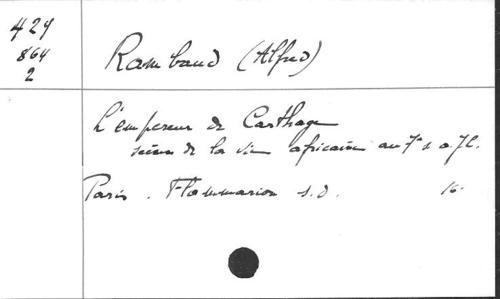 424
864
2
Rambaud (Alfred)
L'empereur de Carthage
scènes de la vie africaine au 7e s. a. J.C.
Paris. Flammarion s.d. 16